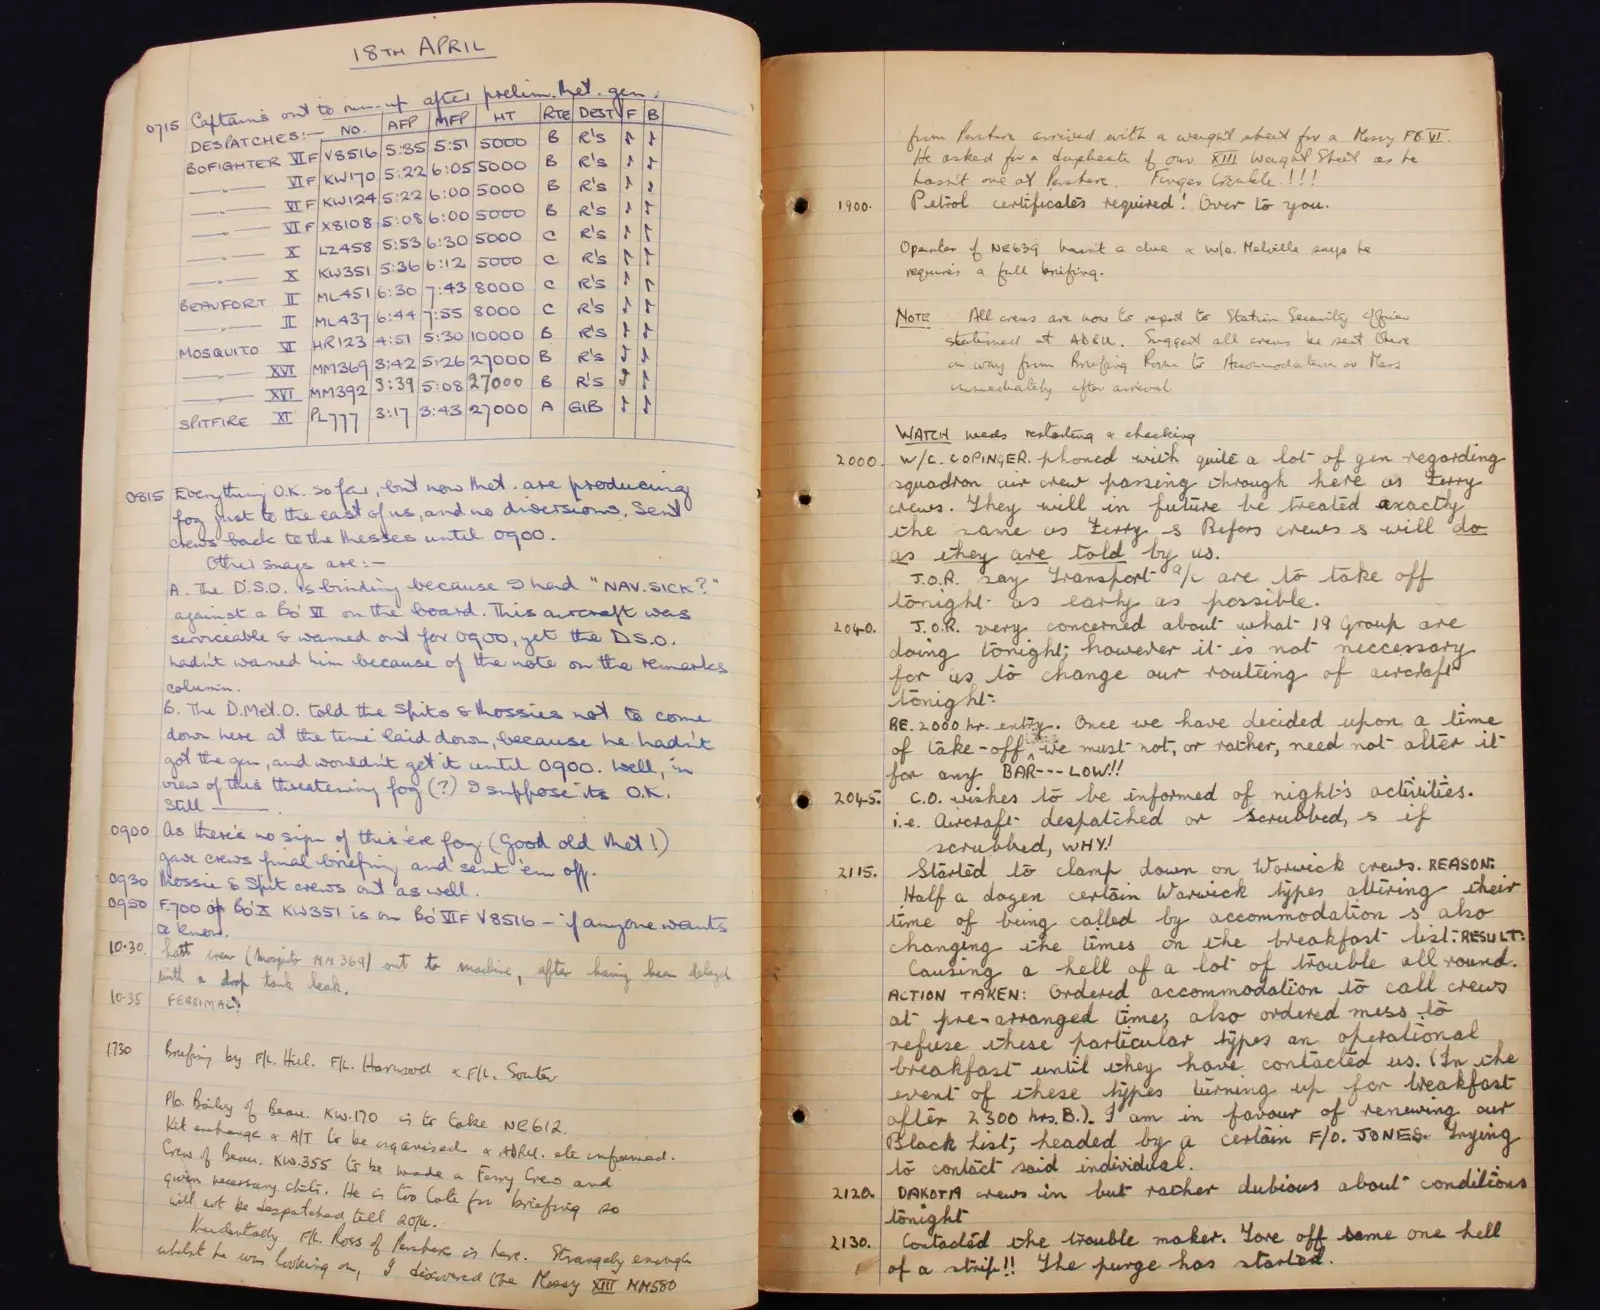 18TH APRIL
0715 Captains out to run-up after prelim. Met. gen.
DESPATCHES:— NO. AFP MFP HT RTE DEST F B
BOFIGHTER VI F V8516 5:35 5:51 5000 B R's √ √
—〃— VI F KW170 5:22 6:05 5000 B R's √ √
—〃— VI F KW124 5:22 6:00 5000 B R's √ √
—〃— VI F X8108 5:08 6:00 5000 B R's √ √
—〃— X LZ458 5:53 6:30 5000 C R's √ √
—〃— X KW351 5:36 6:12 5000 C R's √ √
BEAUFORT II ML451 6:30 7:43 8000 C R's √ √
—〃— II ML437 6:44 7:55 8000 C R's √ √
MOSQUITO VI HR123 4:51 5:30 10000 B R's √ √
—〃— XVI MM369 3:42 5:26 27000 B R's √ √
—〃— XVI MM392 3:39 5:08 27000 B R's √
SPITFIRE XI PL777 3:17 3:43 27000 A GIB √ √
0815 Everything O.K. so far, but now Met. are producing
fog just to the east of us, and no diversions. Sent
crews back to the Messes until 0900.
Other snags are:—
A. The D.S.O. is binding because I had "NAV. SICK?"
against a Bo' VI on the board. This aircraft was
serviceable & warned out for 0900, yet the D.S.O.
hadn't warned him because of the note on the remarks
column.
B. The D.Met.O. told the Spits & Mossies not to come
down here at the time laid down, because he hadn't
got the gen, and wouldn't get it until 0900. Well, in
view of this threatening fog (?) I suppose its O.K.
Still ———
0900 As there's no sign of this 'ere fog (Good old Met!)
gave crews final briefing and sent 'em off.
0930 Mossie & Spit crews out as well.
0950 F.700 of Bo' X KW351 is on Bo' VIF V8516 – if anyone wants
to know.
10.30. Last crew (Mosquito MM369) out to machine, after having been delayed
with a drop tank leak.
10.35
1730 Briefing by F/L. Hill. F/L. Harwood & F/L. Souter
P/o. Bailey of Beau. KW.170 is to take NE612.
Kit exchange & A/T to be organised & ADRU. etc informed.
Crew of Beau. KW.355 to be made a Ferry Crew and
given necessary chits. He is too late for briefing so
will not be despatched till 20/4.
Incidentally F/L. Ross of Pershore is here. Strangely enough
whilst he was looking on, I discovered the Mossy XIII MM580
from Pershore arrived with a weight sheet for a Mossy FB VI.
He asked for a duplicate of our XIII Weight Sheet as he
hasn't one at Pershore. Finger trouble!!!
1900. Petrol certificates required! Over to you.
Operator of NE639 hasn't a clue & W/O. Melville says he
requires a full briefing.
NOTE All crews are now to report to Station Security Officer
stationed at ADRU. Suggest all crews be sent there
on way from Briefing Room to Accommodation or Mess
immediately after arrival
WATCH needs restarting & checking
2000. W/C. COPINGER. phoned with quite a lot of gen regarding
squadron air crew passing through here as Ferry
crews. They will in future be treated exactly
the same as Ferry & Refors crews & will do
as they are told by us.
J.O.R. say Transport a/c are to take off
tonight as early as possible.
2040. J.O.R. very concerned about what 19 Group are
doing tonight; however it is not neccessary
for us to change our routeing of aircraft
tonight.
RE. 2000 hr. entry. Once we have decided upon a time
of take-off, we must not, or rather, need not alter it
for any BAR---LOW!!
2045. C.O. wishes to be informed of night's activities.
i.e. Aircraft despatched or scrubbed, & if
scrubbed, WHY!
2115. Started to clamp down on Warwick crews. REASON:
Half a dozen certain Warwick types altering their
time of being called by accommodation & also
changing the times on the breakfast list. RESULT:
Causing a hell of a lot of trouble all round.
ACTION TAKEN: Ordered accommodation to call crews
at pre-arranged time; also ordered mess to
refuse these particular types an operational
breakfast until they have contacted us. (In the
event of these types turning up for breakfast
after 2300 hrs. B.). I am in favour of renewing our
Black List; headed by a certain F/O. JONES. Trying
to contact said individual.
2120. DAKOTA crews in but rather dubious about conditions
tonight
2130. Contacted the trouble maker. Tore off same one hell
of a strip!! The purge has started.